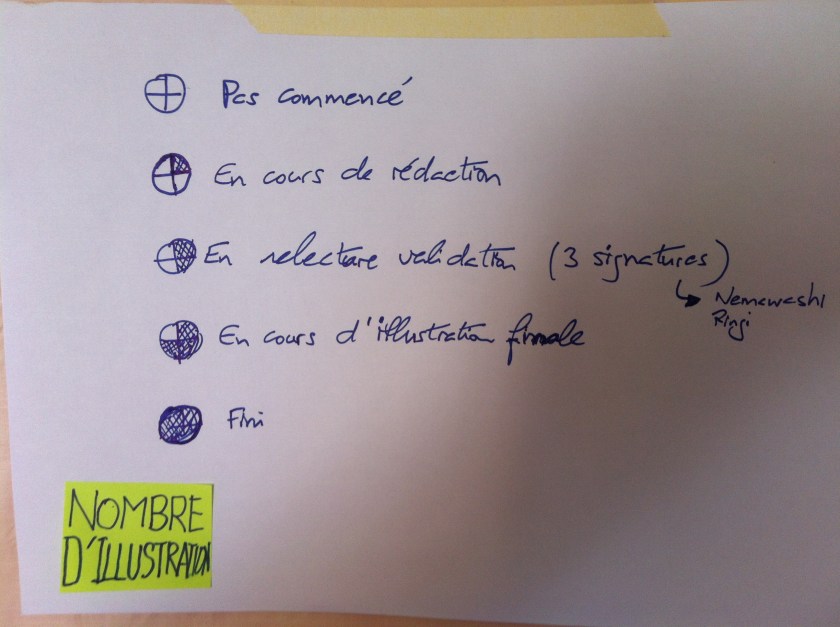 Pas commencé
En cours de rédaction
En relecture validation (3 signatures)
Nemawashi
Ringi
En cours d'illustration finale
Fini
NOMBRE
D'ILLUSTRATION